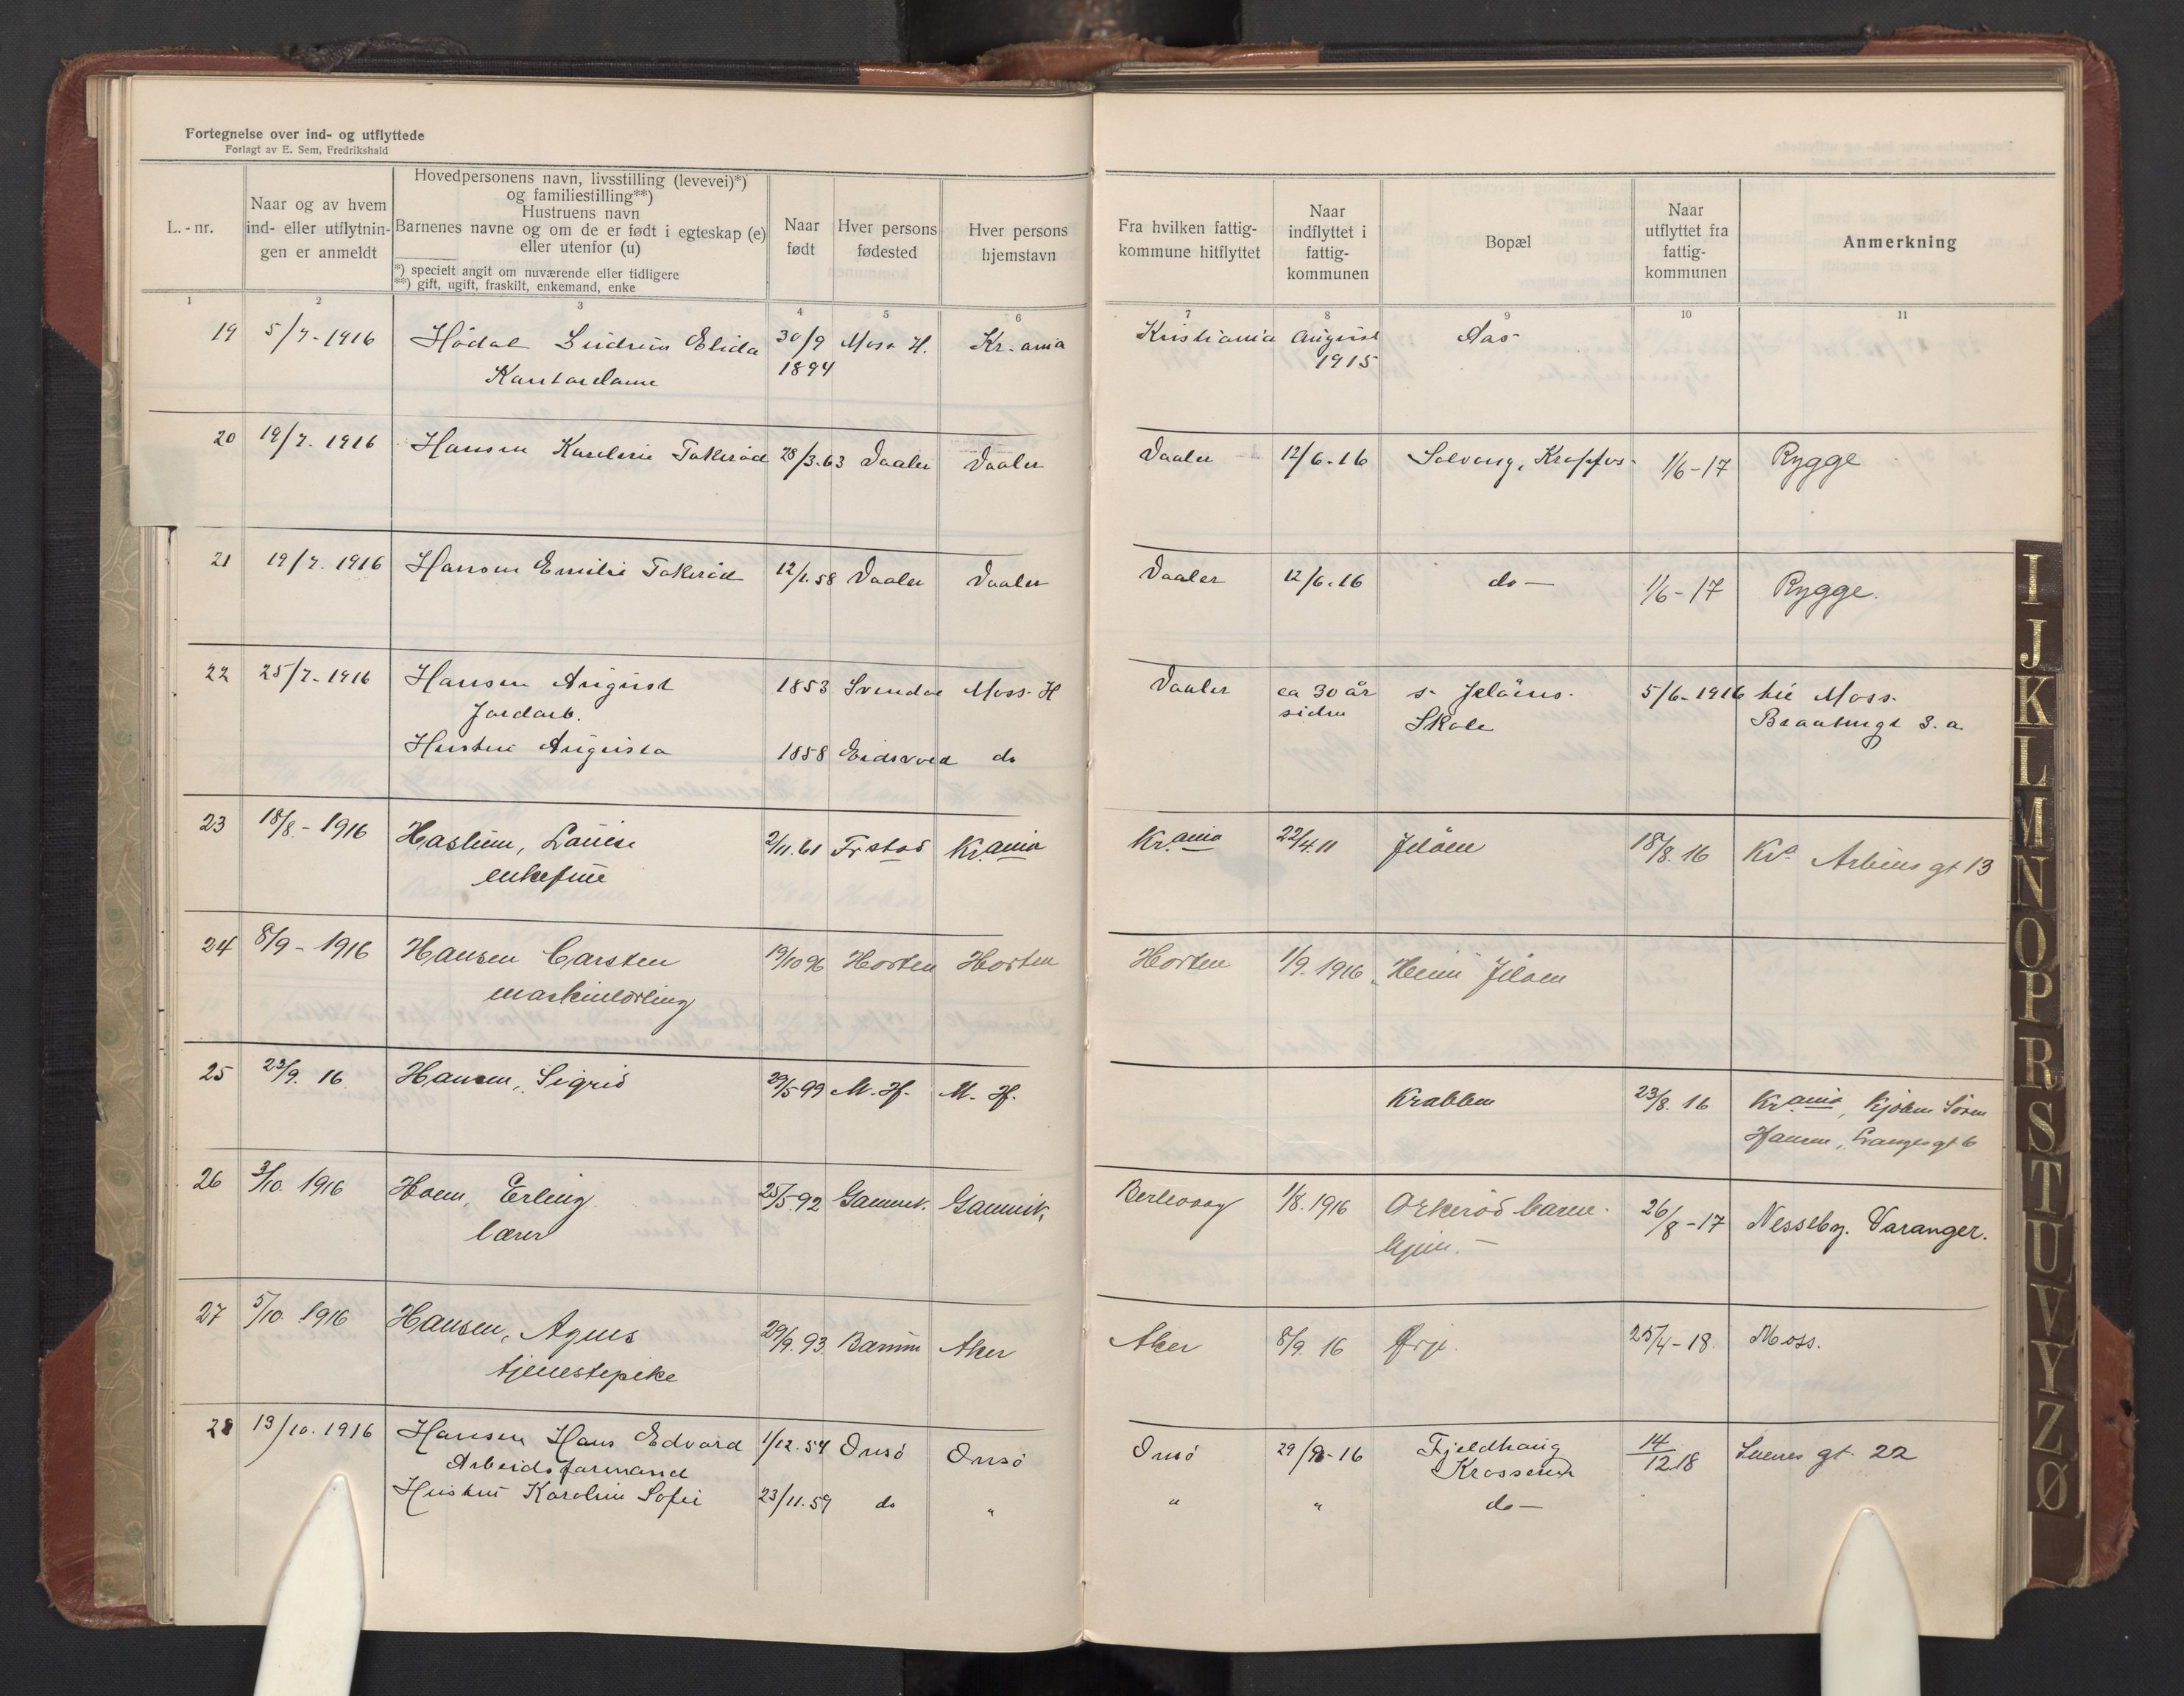 Fortegnelse over ind- og utflyttede
Forlagt av E. Sem, Fredrikshald
L.-nr.
Naar og av hvem
ind- eller utflytnin-
gen er anmeldt
Hovedpersonens navn, livsstilling (levevei)*)
og familiestilling**)
Hustruens navn
Barnenes navne og om de er født i egteskap (e)
eller utenfor (u)
*) specielt angit om nuværende eller tidligere
**) gift, ugift, fraskilt, enkemand, enke
Naar
født
Hver persons
fødested
Hver persons
hjemstavn
Fra hvilken fattig-
kommune hitflyttet
Naar
indflyttet i
fattig-
kommunen
Bopæl
Naar
utflyttet fra
fattig-
kommunen
Anmerkning
1 2 3 4 5 6 7 8 9 10 11
19 5/7-1916 Hödal Elida 30/9 Moss H. Kr.ania Kristiania August Aas
1894 1915
20 19/7. 1916 Hansen Takeröd 28/3.63 Vaaler Vaaler Vaaler 12/6.16 Solvang, 1/6-17 Rygge
21 19/7. 1916 Hansen Emilie Takeröd 12/1.58 Vaaler Vaaler Vaaler 12/6.16 do — 1/6-17 Rygge.
22 25/7-1916 Hansen August 1853 Moss H Vaaler ca 30 år s. Jelöens 5/6-1916 til Moss.
Jordarb. siden Skole 3.a.
Hustru Augusta 1858 Eidsvold do
23 18/8.-1916 Haslum, Louise 2/11.61 Frstad Kr.ania Kr.ania 22/4.11 Jelöen 18/8.16 Kra Arbins gt 13
enkefrue
24 8/9-1916 Hansen Carsten 19/10 96 Horten Horten Horten 1/9.1916 Jeløen
maskinlørling
25 23/9. 16 Hansen, Sigrid 29/5 99 M. Hf. M. Hf. Krabben 23/8. 16 Kr.ania, Søren
Hansen, gt 6
26 3/10. 1916 Hoem, Erling 25/5.92 Gamvik. Gamvik. Berlevaag 1/8.1916 Orkerød barne- 26/8-17 Nesseby. Varanger.
lærer hjem. —
27 5/10. 1916 Hansen, Agnes 29/9.93 Aker Aker 8/9. 16 Ørje. 25/4-18. Moss.
tjenestepike
28 13/10.1916 Hansen Hans Edvard 1/12.54 Onsö Onsö Onsö 29/9-16 Fjeldhaug 14/12 18 gt 22
Arbeidsformand Krosser
Hustru Karoline Sofie 23/11.59 do " " " do —
I
J
K
L
M
N
O
P
R
S
T
U
V
Y
Z
Ø